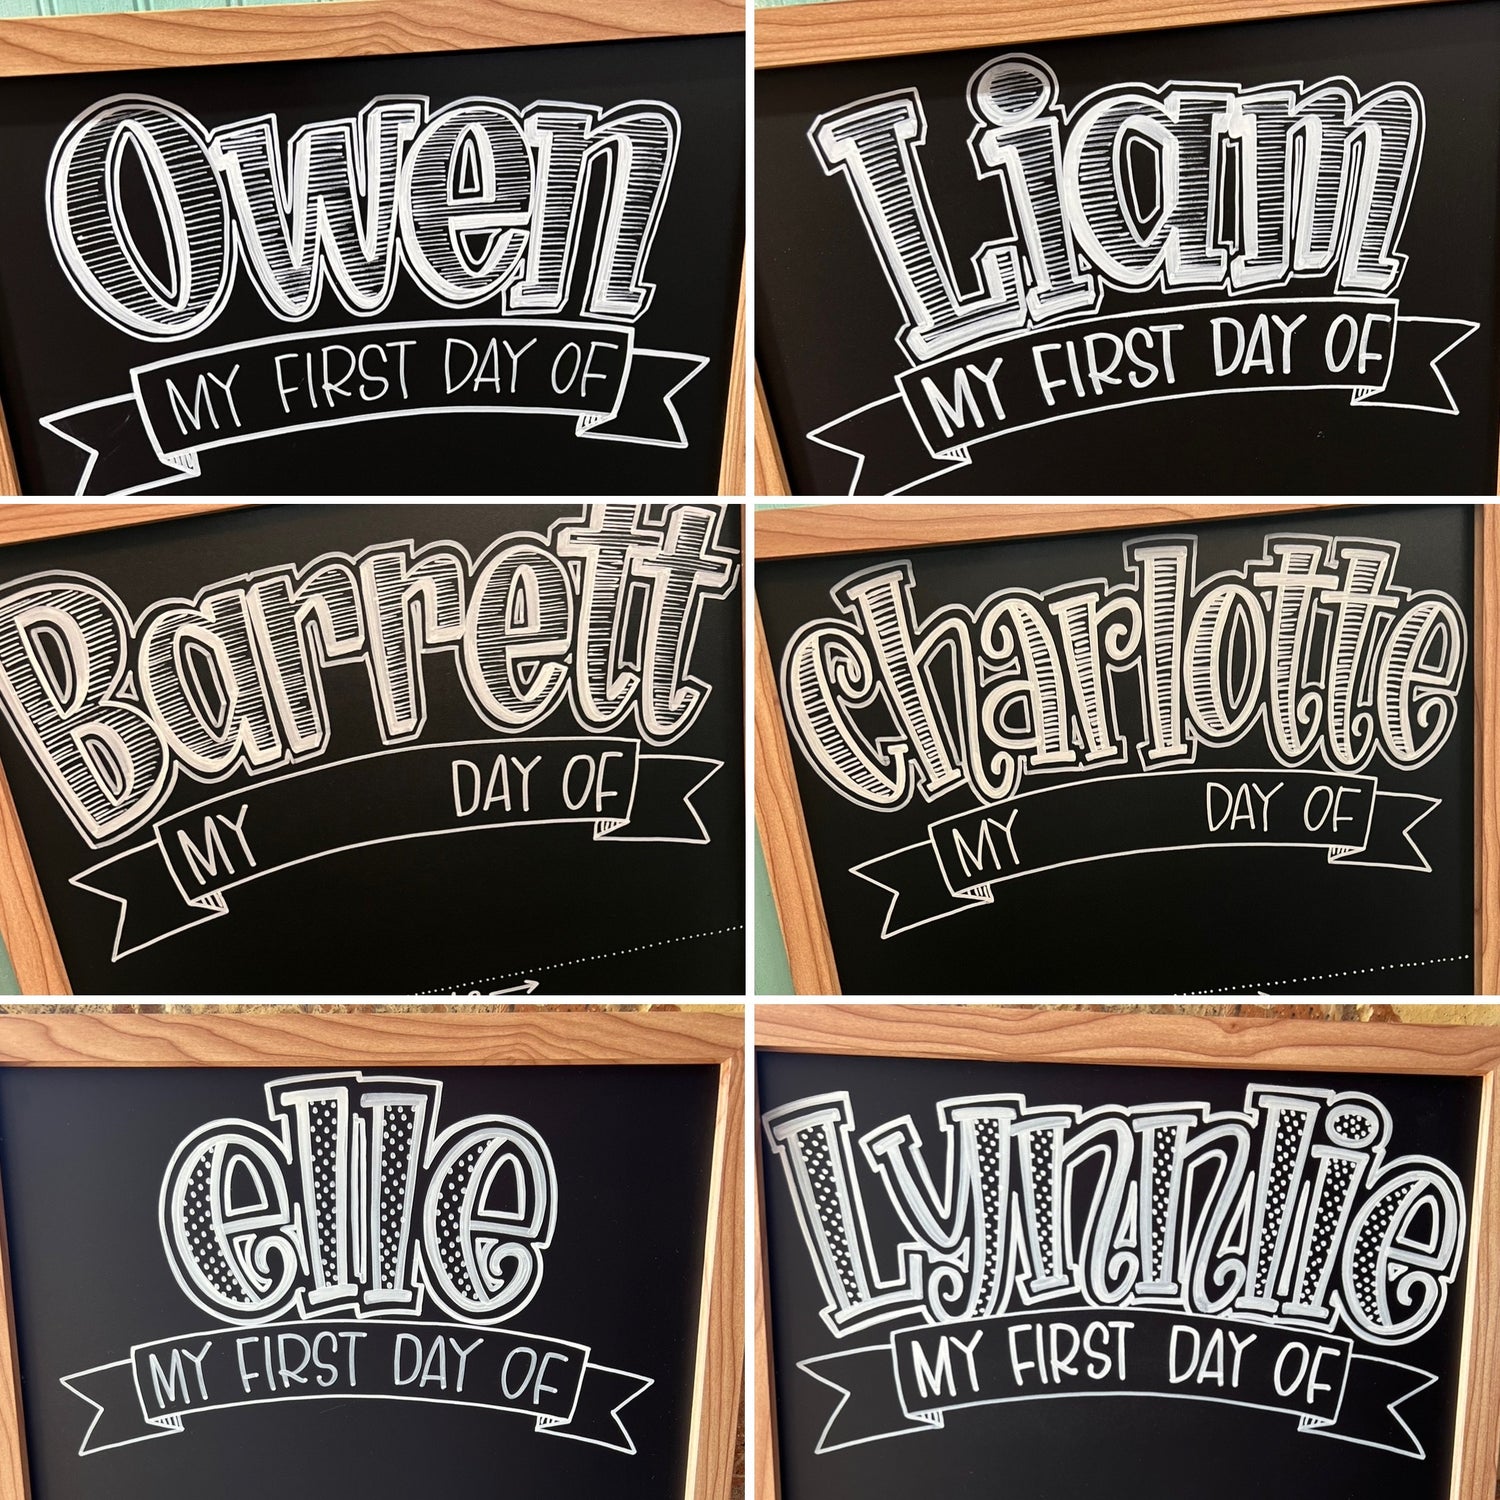 Owen
MY FIRST DAY OF
Liam
MY FIRST DAY OF
Barrett
MY DAY OF
charlotte
MY DAY OF
elle
MY FIRST DAY OF
Lynnlie
MY FIRST DAY OF